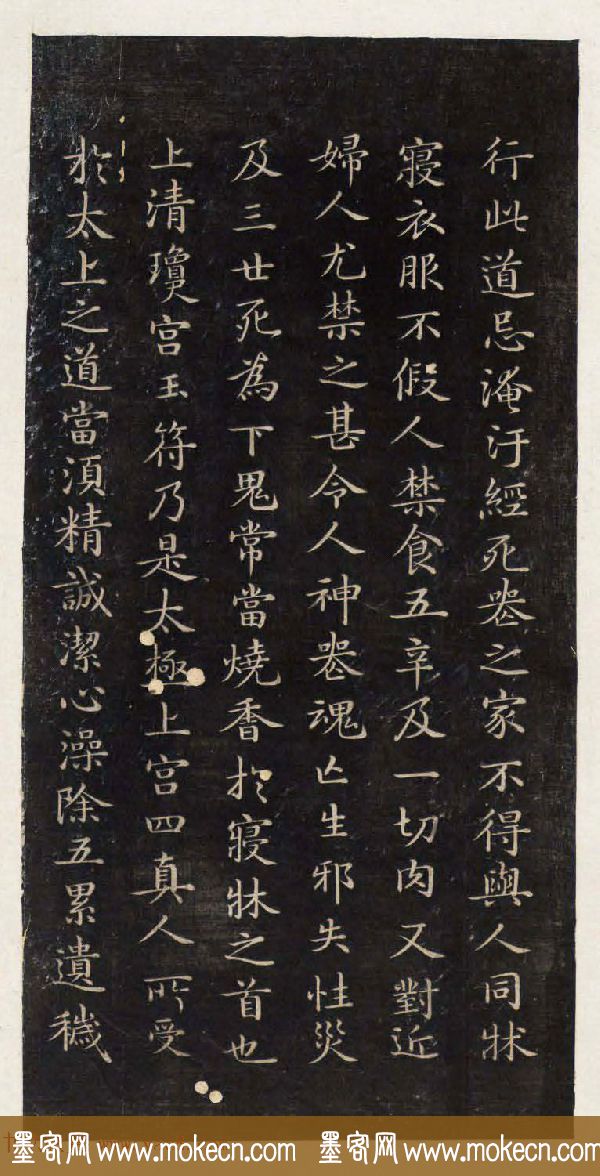 行此道忌淹汙經死喪之家不得與人同牀
寝衣服不假人禁食五辛及一切肉又對近
婦人尤禁之甚令人神喪魂亡生邪失性災
及三世死為下鬼常當燒香於寝牀之首也
上清瓊宫玉符乃是太極上宫四真人所受
於太上之道當須精誠潔心澡除五累遺穢
墨客网 www.mokecn.com 墨客网 www.mokecn.com